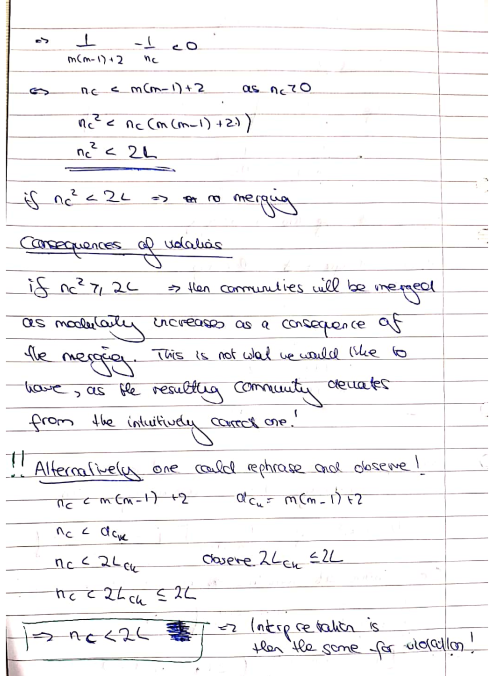 ⇔ 1/(m(m-1)+2) - 1/nc < 0
⇔ nc < m(m-1)+2 as nc > 0
nc² < nc (m(m-1)+2))
nc² < 2L
if nc² < 2L ⇒ no merging
Consequences of violations
if nc² ≥ 2L ⇒ then communities will be merged
as modularity increases as a consequence of
the merging. This is not what we would like to
have, as the resulting community deviates
from the intuitively correct one!
!! Alternatively one could rephrase and observe!
nc < m(m-1) +2 dcu = m(m-1)+2
nc < dcu
nc < 2Lcu observe 2Lcu ≤ 2L
nc < 2Lcu ≤ 2L
⇒ nc < 2L ⇒ Interpretation is
then the same for violation!